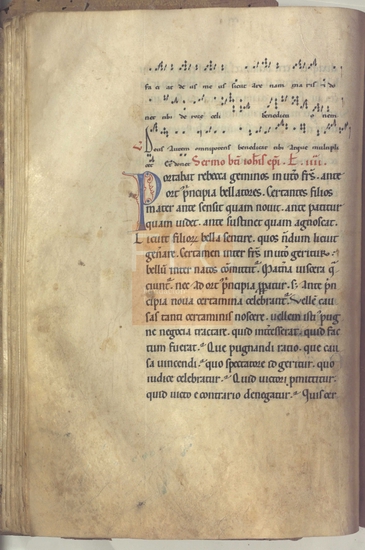 fa ci at de us me us sicut are nam ma ris &
nor nbi de rore celi benedicti o nem
Deus autem omnipotens benedicat tibi atque multipli
cet Sermo bti iohis epi. E. iiii.
Portabat rebecca geminos in utero frs. ante
ort principia bellatores. Certantes filios
mater ante sensit quam nouit. ante patitur
quam uidet. ante sustinet quam agnoscat.
Licuit filiorum bella sentire. quos nondum licuit
genare. Certamen inter frs in utero geritur.
bellum inter natos committitur. Materna uiscera
nec ad ort principia paratur. s; ante prin
cipia noua certamina celebrantur. Vellem cau
sas tanti certaminis noscere. uellem isti pug
ne negocia tractare. quid interesserat. quid fac
tum fuerat. Que pugnandi ratio. que cau
sa uincendi. quo spectatore id geritur. quo
iudice celebratur. Quid uictori promittitur.
quid uicto e contrario denegatur.